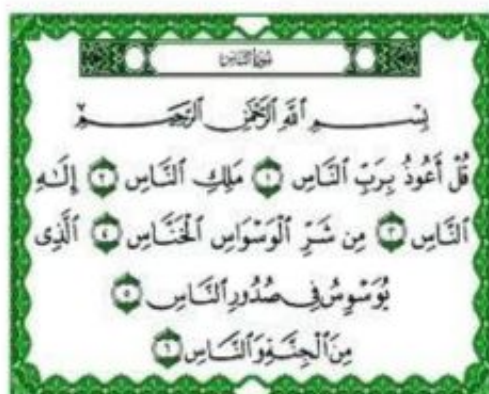 سورة الناس
بِسْمِ ٱللَّهِ ٱلرَّحْمَٰنِ ٱلرَّحِيمِ
قُلْ أَعُوذُ بِرَبِّ ٱلنَّاسِ ١ مَلِكِ ٱلنَّاسِ ٢ إِلَٰهِ
ٱلنَّاسِ ٣ مِن شَرِّ ٱلْوَسْوَاسِ ٱلْخَنَّاسِ ٤ ٱلَّذِى
يُوَسْوِسُ فِى صُدُورِ ٱلنَّاسِ ٥
مِنَ ٱلْجِنَّةِ وَٱلنَّاسِ ٦